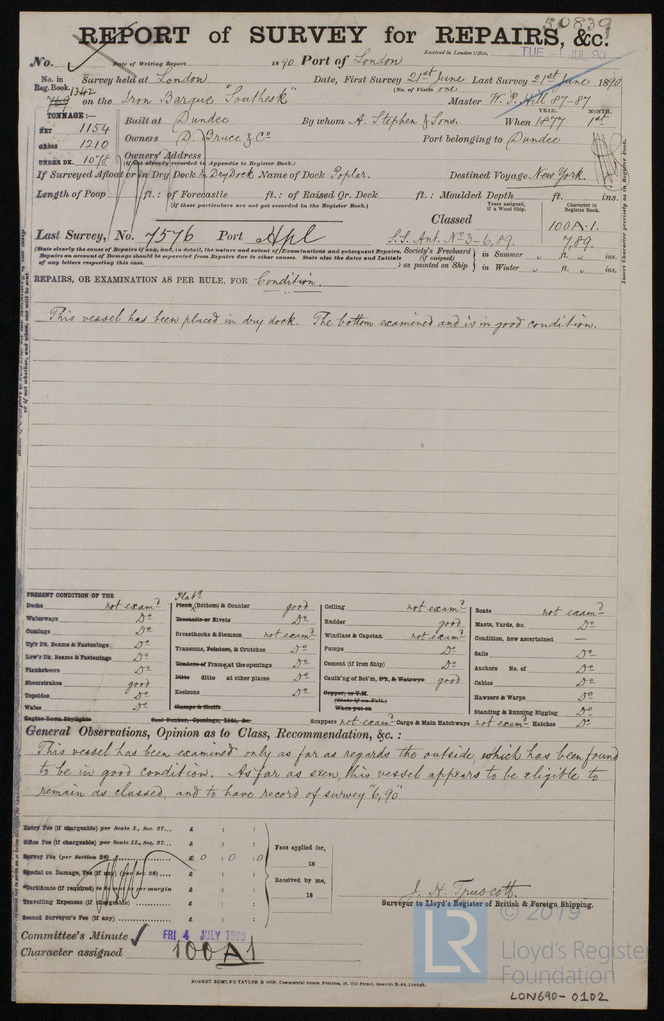 50839
REPORT of SURVEY for REPAIRS, &c.
Received in London Office,
TUE 1 JUL 90
No. Date of Writing Report 1890 Port of London
No. in Reg. Book. Survey held at London Date, First Survey 21st June Last Survey 21st June 1890
(No. of Visits one)
1342 on the Iron Barque "Southesk" Master W. P. Hill 87-87
TONNAGE:— YEAR. MONTH.
NET 1154 Built at Dundee By whom A. Stephen & Sons. When 1877 1st
GROSS 1210 Owners D. Bruce & Co Port belonging to Dundee
UNDER DK. 1078 Owners' Address
(If not already recorded in Appendix to Register Book.)
If Surveyed Afloat or in Dry Dock In Dry Dock Name of Dock Poplar. Destined Voyage New York.
Length of Poop ft.: of Forecastle ft.: of Raised Qr. Deck ft.: Moulded Depth ft. ins.
(If these particulars are not yet recorded in the Register Book.)
Years assigned, if a Wood Ship. Character in Register Book.
Insert Character precisely as in Register Book.
Classed 100A.1.
Last Survey, No. 7576 Port Hpl S.S. Ant. No 3-6,89. 7,89.
(State clearly the cause of Repairs if any, and, in detail, the nature and extent of Examinations and subsequent Repairs.
Repairs on account of Damage should be separated from Repairs due to other causes. State also the dates and Initials
of any letters respecting this case.
Society's Freeboard (if assigned) as painted on Ship in Summer „ ft. „ ins.
in Winter „ ft. „ ins.
REPAIRS, OR EXAMINATION AS PER RULE, FOR Condition.
This vessel has been placed in dry dock. The bottom examined and is in good condition.
PRESENT CONDITION OF THE
Decks not examd
Waterways Do
Comings Do
Up'r Dk. Beams & Fastenings Do
Low'r Dk. Beams & Fastenings Do
Planksheers Do
Sheerstrakes good
Topsides Do
Wales Do
Engine Room Skylights
Platg
Plank (Bottom) & Counter good
Treenails or Rivets Do
Breasthooks & Stemson not examd
Transoms, Pointers, & Crutches Do
Timbers of Frame at the openings Do
Ditto ditto at other places Do
Keelsons Do
Clamps & Shelfs
Coal Bunker, Openings, Lids, &c.
Ceiling not examd
Rudder good
Windlass & Capstan not examd
Pumps Do
Cement (if Iron Ship) Do
Caulk'ng of Bot'm, D'k, & Waterways good
Copper, or Y.M.
(State if on Felt.)
When put on
Scuppers not examd Cargo & Main Hatchways not examd Hatches Do
Boats not examd
Masts, Yards, &c. Do
Condition, how ascertained —
Sails Do
Anchors No. of Do
Cables Do
Hawsers & Warps Do
Standing & Running Rigging Do
General Observations, Opinion as to Class, Recommendation, &c. :
This vessel has been examined only as far as regards the outside, which has been found
to be in good condition. As far as seen, this vessel appears to be eligible to
remain as classed, and to have record of survey "6,90"
Entry Fee (if chargeable) per Scale I., Sec. 27... £ : :
Office Fee (if chargeable) per Scale II., Sec. 27... £ : :
Survey Fee (per Section 28) £ 0 : 0 : 0
Special on Damage, Fee (if any) (per Sec. 28) £ : :
Certificate (if required) to be sent as per margin
Travelling Expenses (if chargeable) £ : :
Second Surveyor's Fee (if any) £ : :
Fees applied for,
18
Received by me,
18
J. H. Truscott.
Surveyor to Lloyd's Register of British & Foreign Shipping.
Committee's Minute FRI 4 JULY 1890
Character assigned 100A1
ROBERT EDMUND TAYLOR & SON, Commercial Steam Printers, 19, Old Street, London, E.C.
© 2019
LR
Lloyd's Register
Foundation
LON690-0102